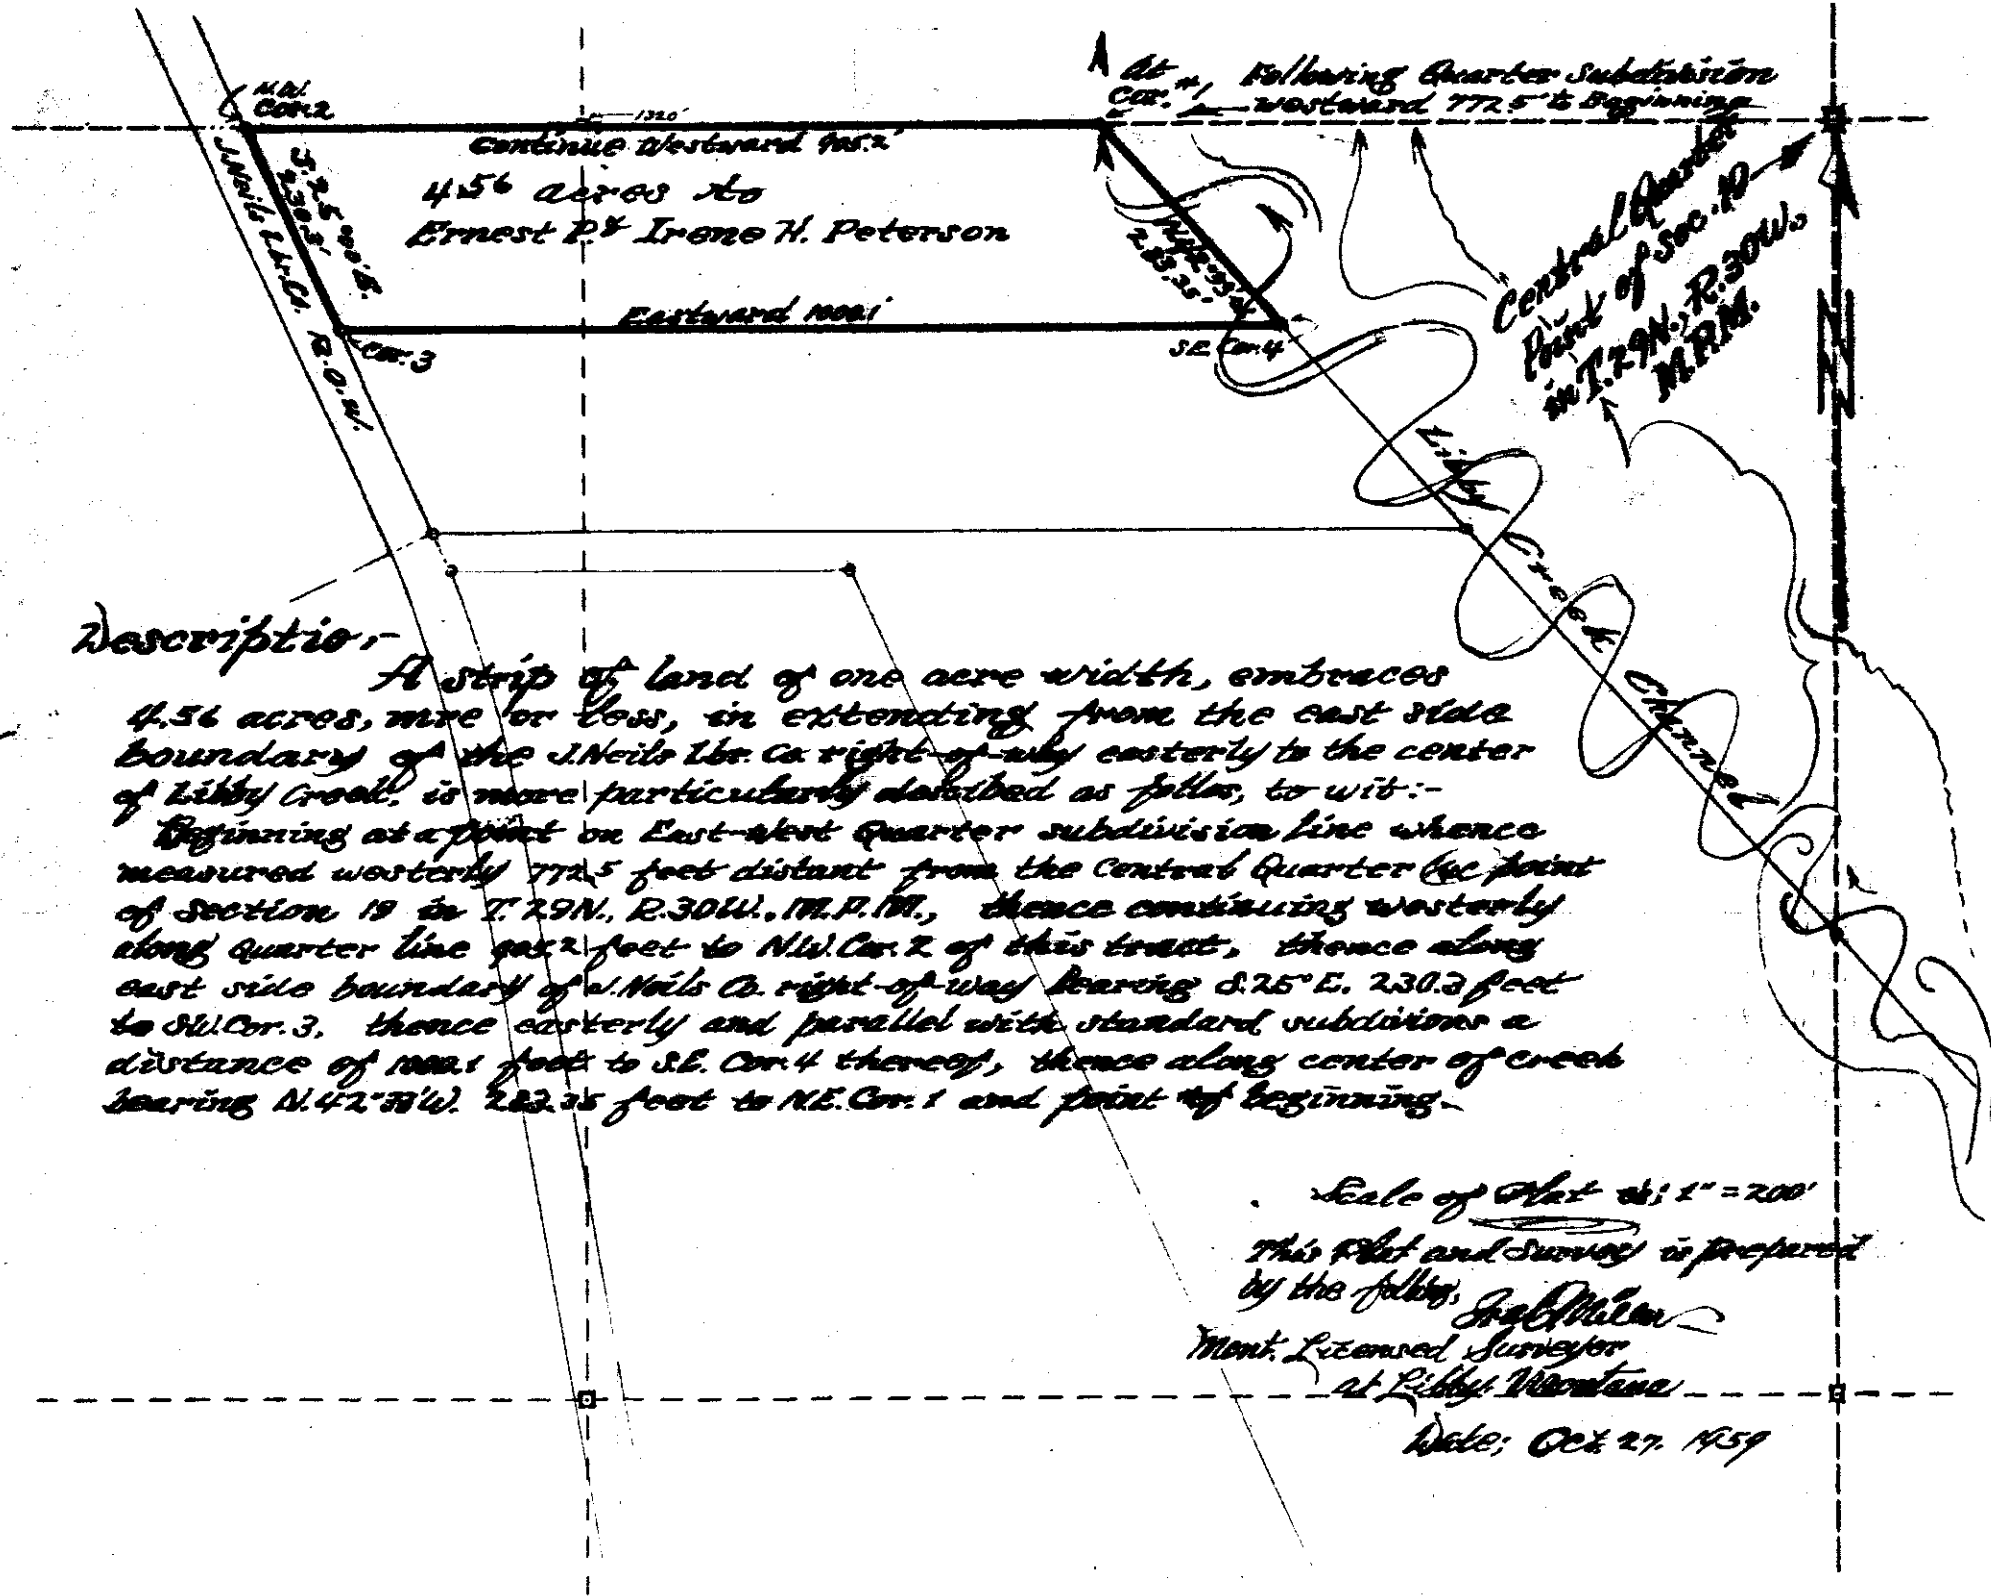 N.W.
Cor. 2
1320'
At
Cor. #1
Following Quarter Subdivision
westward 772.5' to Beginning
Continue Westward 905.2'
4.56 acres to
Ernest P. & Irene H. Peterson
S. 25°00'E.
230.3'
J. Neils Lbr. Co. R.O.W.
N.42°33'W.
283.35'
Eastward 1000.1'
Cor. 3
S.E. Cor. 4
Central Quarter
Point of Sec. 19
in T. 29N., R. 30W.
M.P.M.
N
Libby Creek Channel
Description
A strip of land of one acre width, embraces
4.56 acres, mre or less, in extending from the east side
boundary of the J. Neils Lbr. Co. right-of-way easterly to the center
of Libby Creek, is more particularly described as follos, to wit:-
Beginning at a point on East-West Quarter subdivision line whence
measured westerly 772.5 feet distant from the Central Quarter Sec point
of Section 19 in T. 29N., R. 30W., M.P.M., thence continuing westerly
along quarter line 905.2 feet to N.W. Cor. 2 of this tract, thence along
east side boundary of J. Neils Co. right-of-way bearing S. 25° E. 230.3 feet
to S.W. Cor. 3, thence easterly and parallel with standard subdivions a
distance of 1000.1 feet to S.E. Cor. 4 thereof, thence along center of creek
bearing N. 42°33'W. 283.35 feet to N.E. Cor. 1 and point of beginning.
Scale of Plat is; 1" = 200'
This Plat and Survey is prepared
by the
Mont. Licensed Surveyor
at Libby, Montana
Date; Oct. 27. 1959